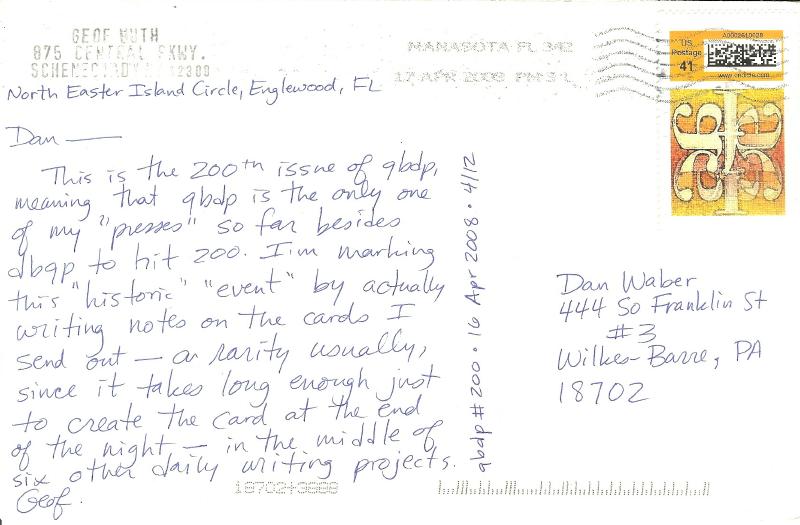 GEOF HUTH
875 CENTRAL PKWY.
SCHENECTADY 12309
MANASOTA FL 342
17 APR 2008 PM 3 L
A0002610028
US
Postage
41
www.endicia.com
North Easter Island Circle, Englewood, FL
Dan —
This is the 200th issue of qbdp,
meaning that qbdp is the only one
of my "presses" so far besides
dbqp to hit 200. I'm marking
this "historic" "event" by actually
writing notes on the cards I
send out — a rarity usually,
since it takes long enough just
to create the card at the end
of the night — in the middle of
six other daily writing projects.
Geof.
qbdp # 200 • 16 Apr 2008 • 4/12
Dan Waber
444 So Franklin St
#3
Wilkes-Barre, PA
18702
18702+3888